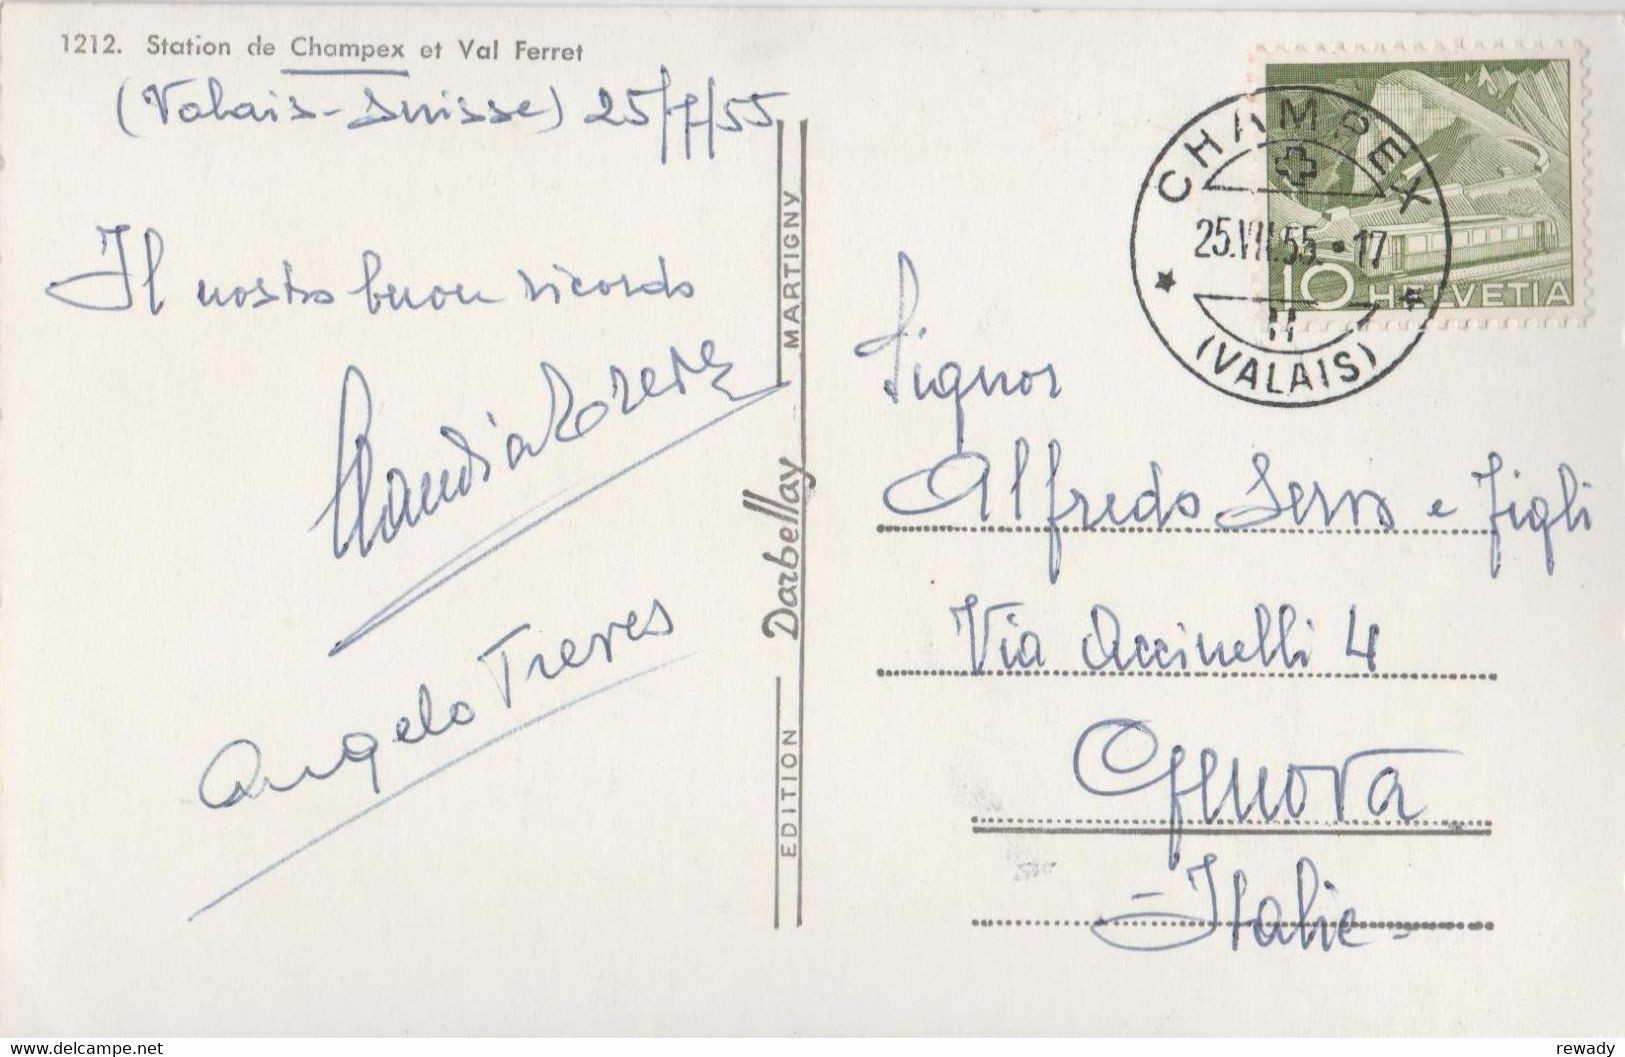 1212. Station de Champex et Val Ferret
(Valais-Suisse) 25/7/55
Il nostro buon ricordo
Claudia
Angelo Treves
EDITION Darbellay MARTIGNY
CHAMPEX
25.VII.55.-17
11
(VALAIS)
10 HELVETIA
Signor
Alfredo Serra e Figli
Via Accinelli 4
Genova
-Italie-
www.delcampe.net
rewady